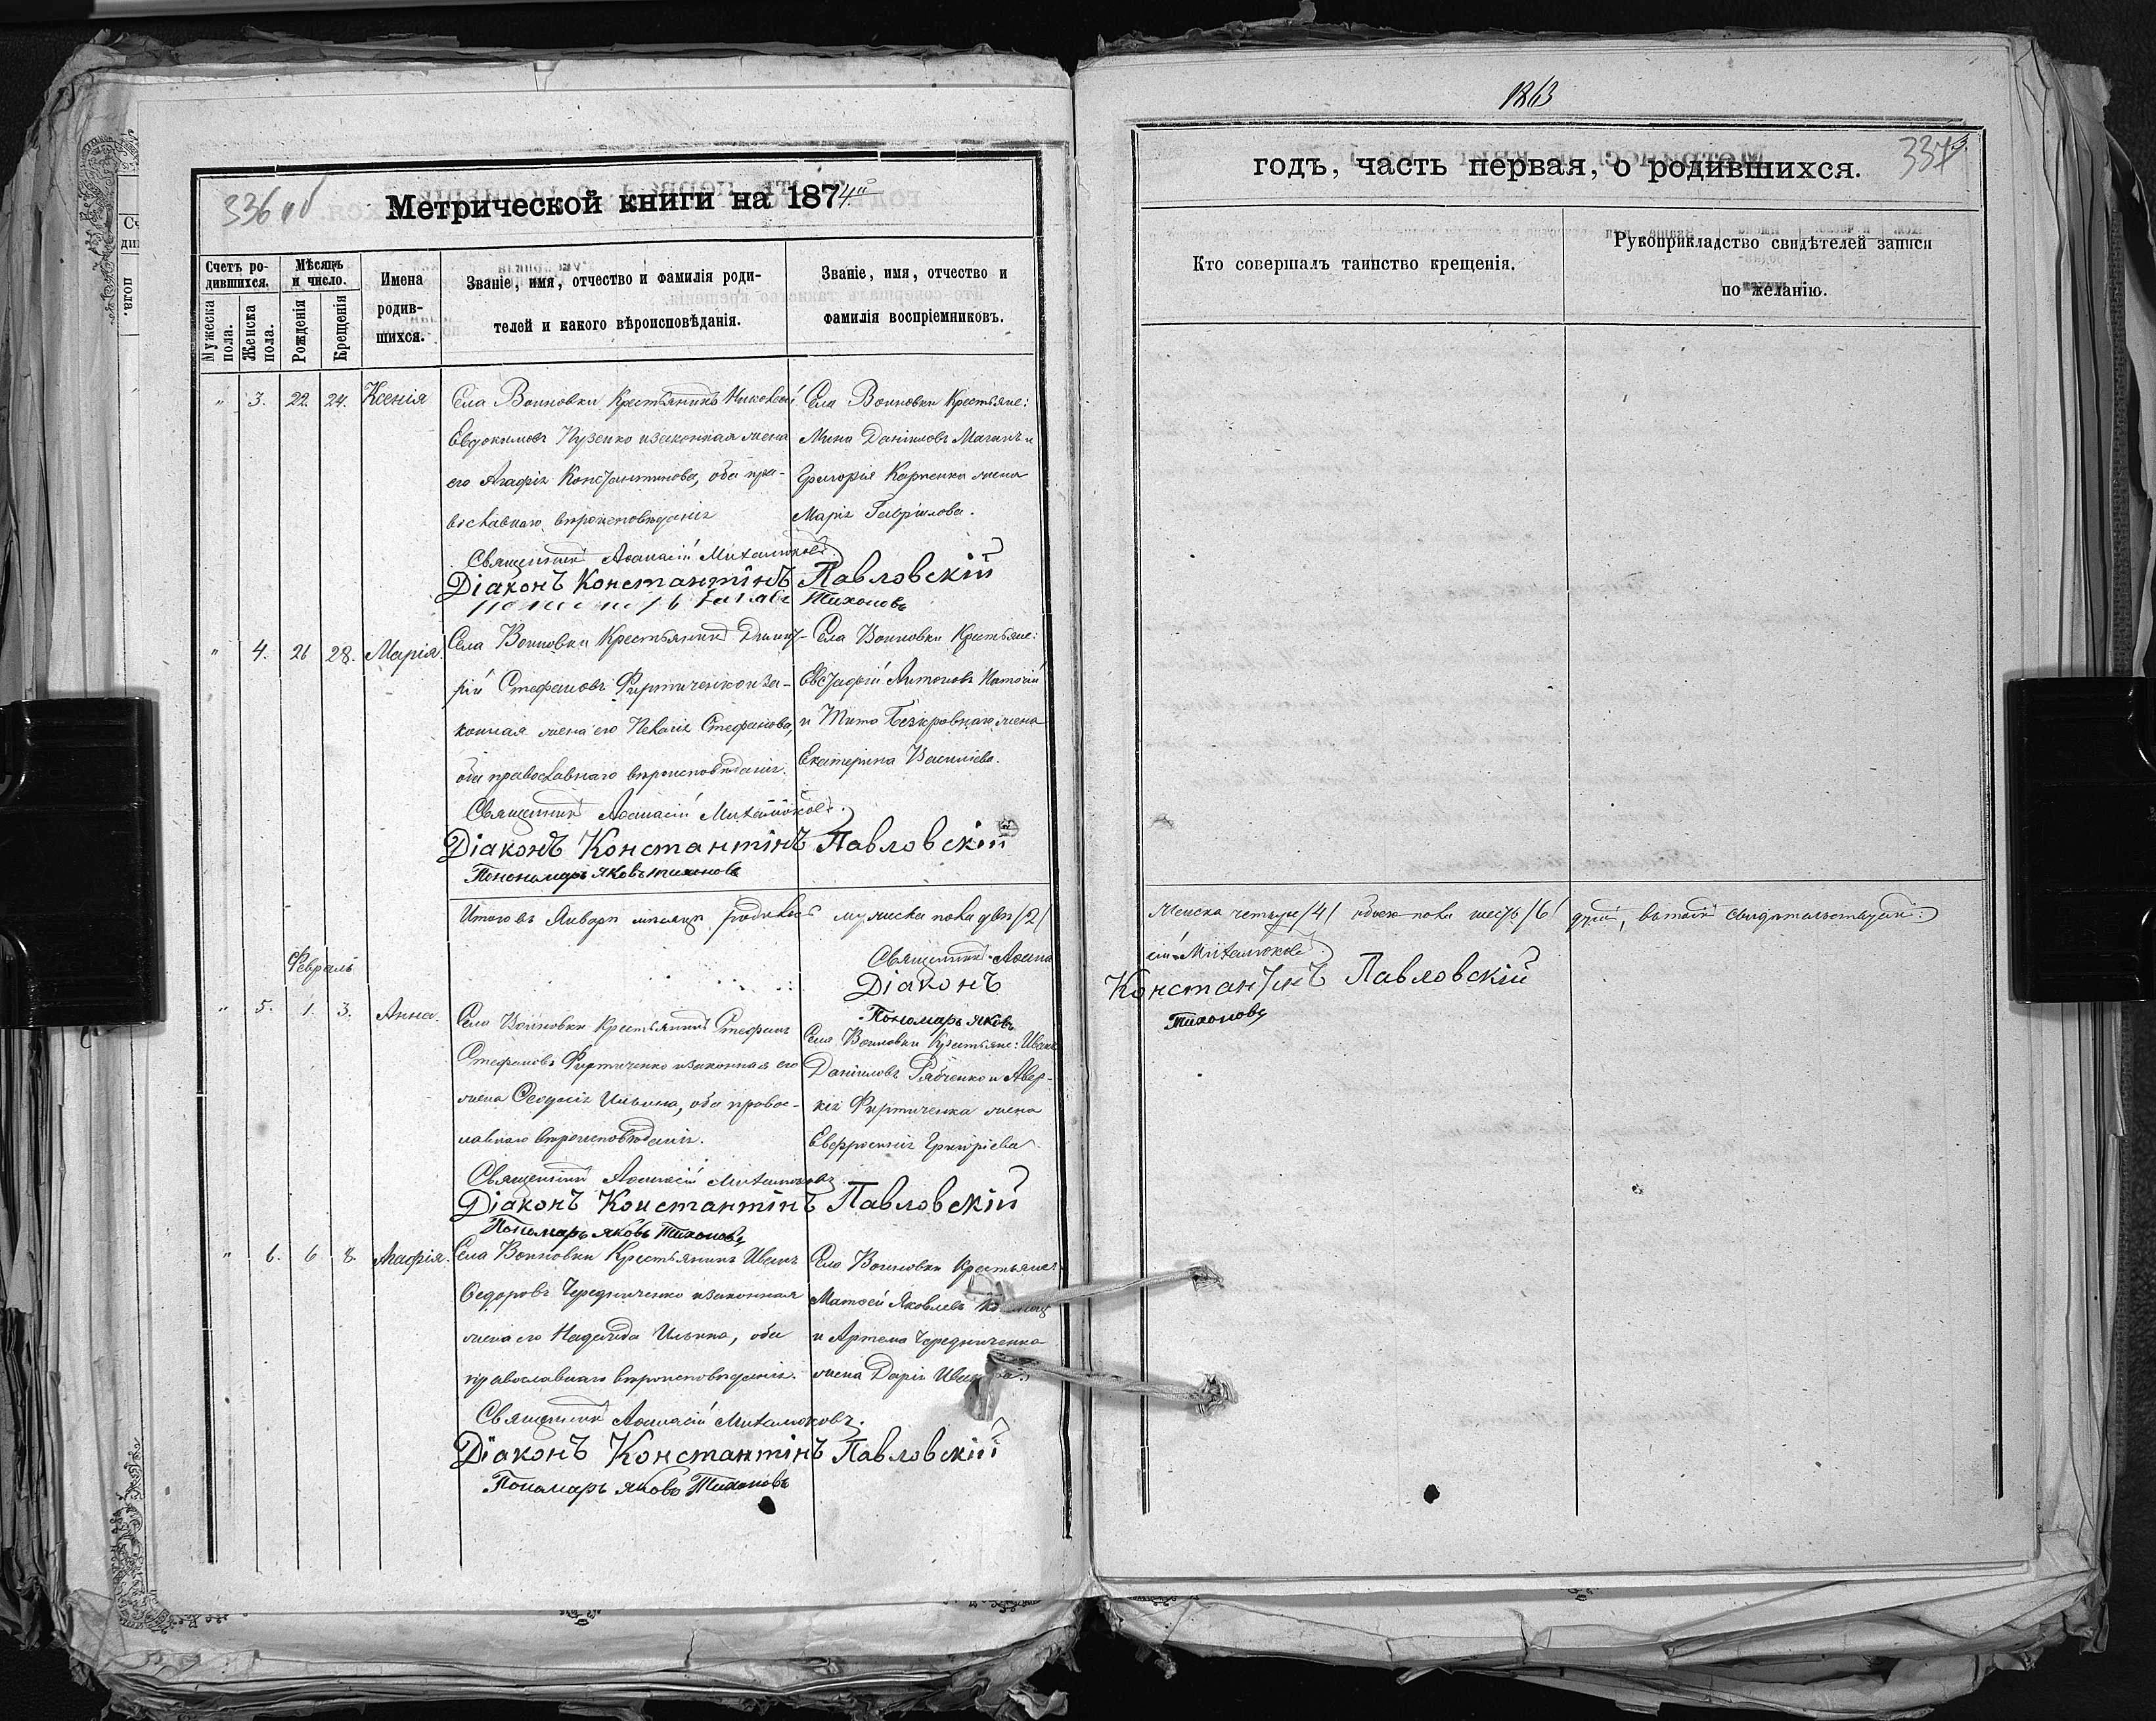 336 об
Метрической книги на 1874й
Счетъ ро-
дившихся.
Мужеска пола.
Женска пола.
Мѣсяцъ
и число.
Рожденія
Крещенія
Имена
родив-
шихся.
Званіе, имя, отчество и фамилія роди-
телей и какого вѣроисповѣданія.
Званіе, имя, отчество и
фамилія воспріемниковъ.
" 3. 22. 24. Ксенія
Села Воиновки Крестьянинъ Николай
Евдокимовъ Пузенко и законная жена
его Агафія Константинова, оба пра-
вославнаго вѣроисповѣданія
Села Воиновки Крестьяне:
Мина Даніиловъ и
Григорія Карпенка жена
Марія Гавріилова.
Священникъ Аѳанасій
Діаконъ Константинъ Павловскій
Тихоновъ
" 4. 26 28. Марія.
Села Воиновки Крестьянинъ Димит-
рій Стефановъ Фиртиченко и за-
конная жена его Пелагія Стефанова,
оба православнаго вѣроисповѣданія.
Села Воиновки Крестьяне:
Евстафій Антоновъ
и Тита Безкровнаго жена
Екатерина Василіева.
Священникъ Аѳанасій
Діаконъ Константинъ Павловскій
Пономарь Яковъ Тихоновъ
Итого въ Январѣ мѣсяцѣ родилось мужеска пола два /2/
Священникъ Аѳана
Діаконъ
Пономарь Яковъ
Февраль
" 5. 1. 3. Анна.
Села Воиновки Крестьянинъ Стефанъ
Стефановъ Фиртиченко и законная его
жена Ѳеодосія Ильина, оба правос-
лавнаго вѣроисповѣданія.
Села Воиновки Крестьяне: Иванъ
Даніиловъ Рябченко и Авер-
кія Фиртиченка жена
Евфросинія Григоріева
Священникъ Аѳанасій
Діаконъ Константинъ Павловскій
Пономарь Яковъ Тихоновъ
" 6. 6 8. Агафія.
Села Воиновки Крестьянинъ Иванъ
Ѳедоровъ Чередниченко и законная
жена его Надежда Ильина, оба
православнаго вѣроисповѣданія.
Села Воиновки Крестьяне:
Матѳей Яковлевъ
и Артема Чередниченка
жена Дарія
Священникъ Аѳанасій
Діаконъ Константинъ Павловскій
Пономарь Яковъ Тихоновъ
1863
337
годъ, часть первая, о родившихся.
Кто совершалъ таинство крещенія.
Рукоприкладство свидѣтелей записи
по желанію.
Женска четыре /4/ обоего пола шесть /6/ душъ, въ томъ свидѣтельствуемъ:
сій
Константинъ Павловскій
Тихоновъ